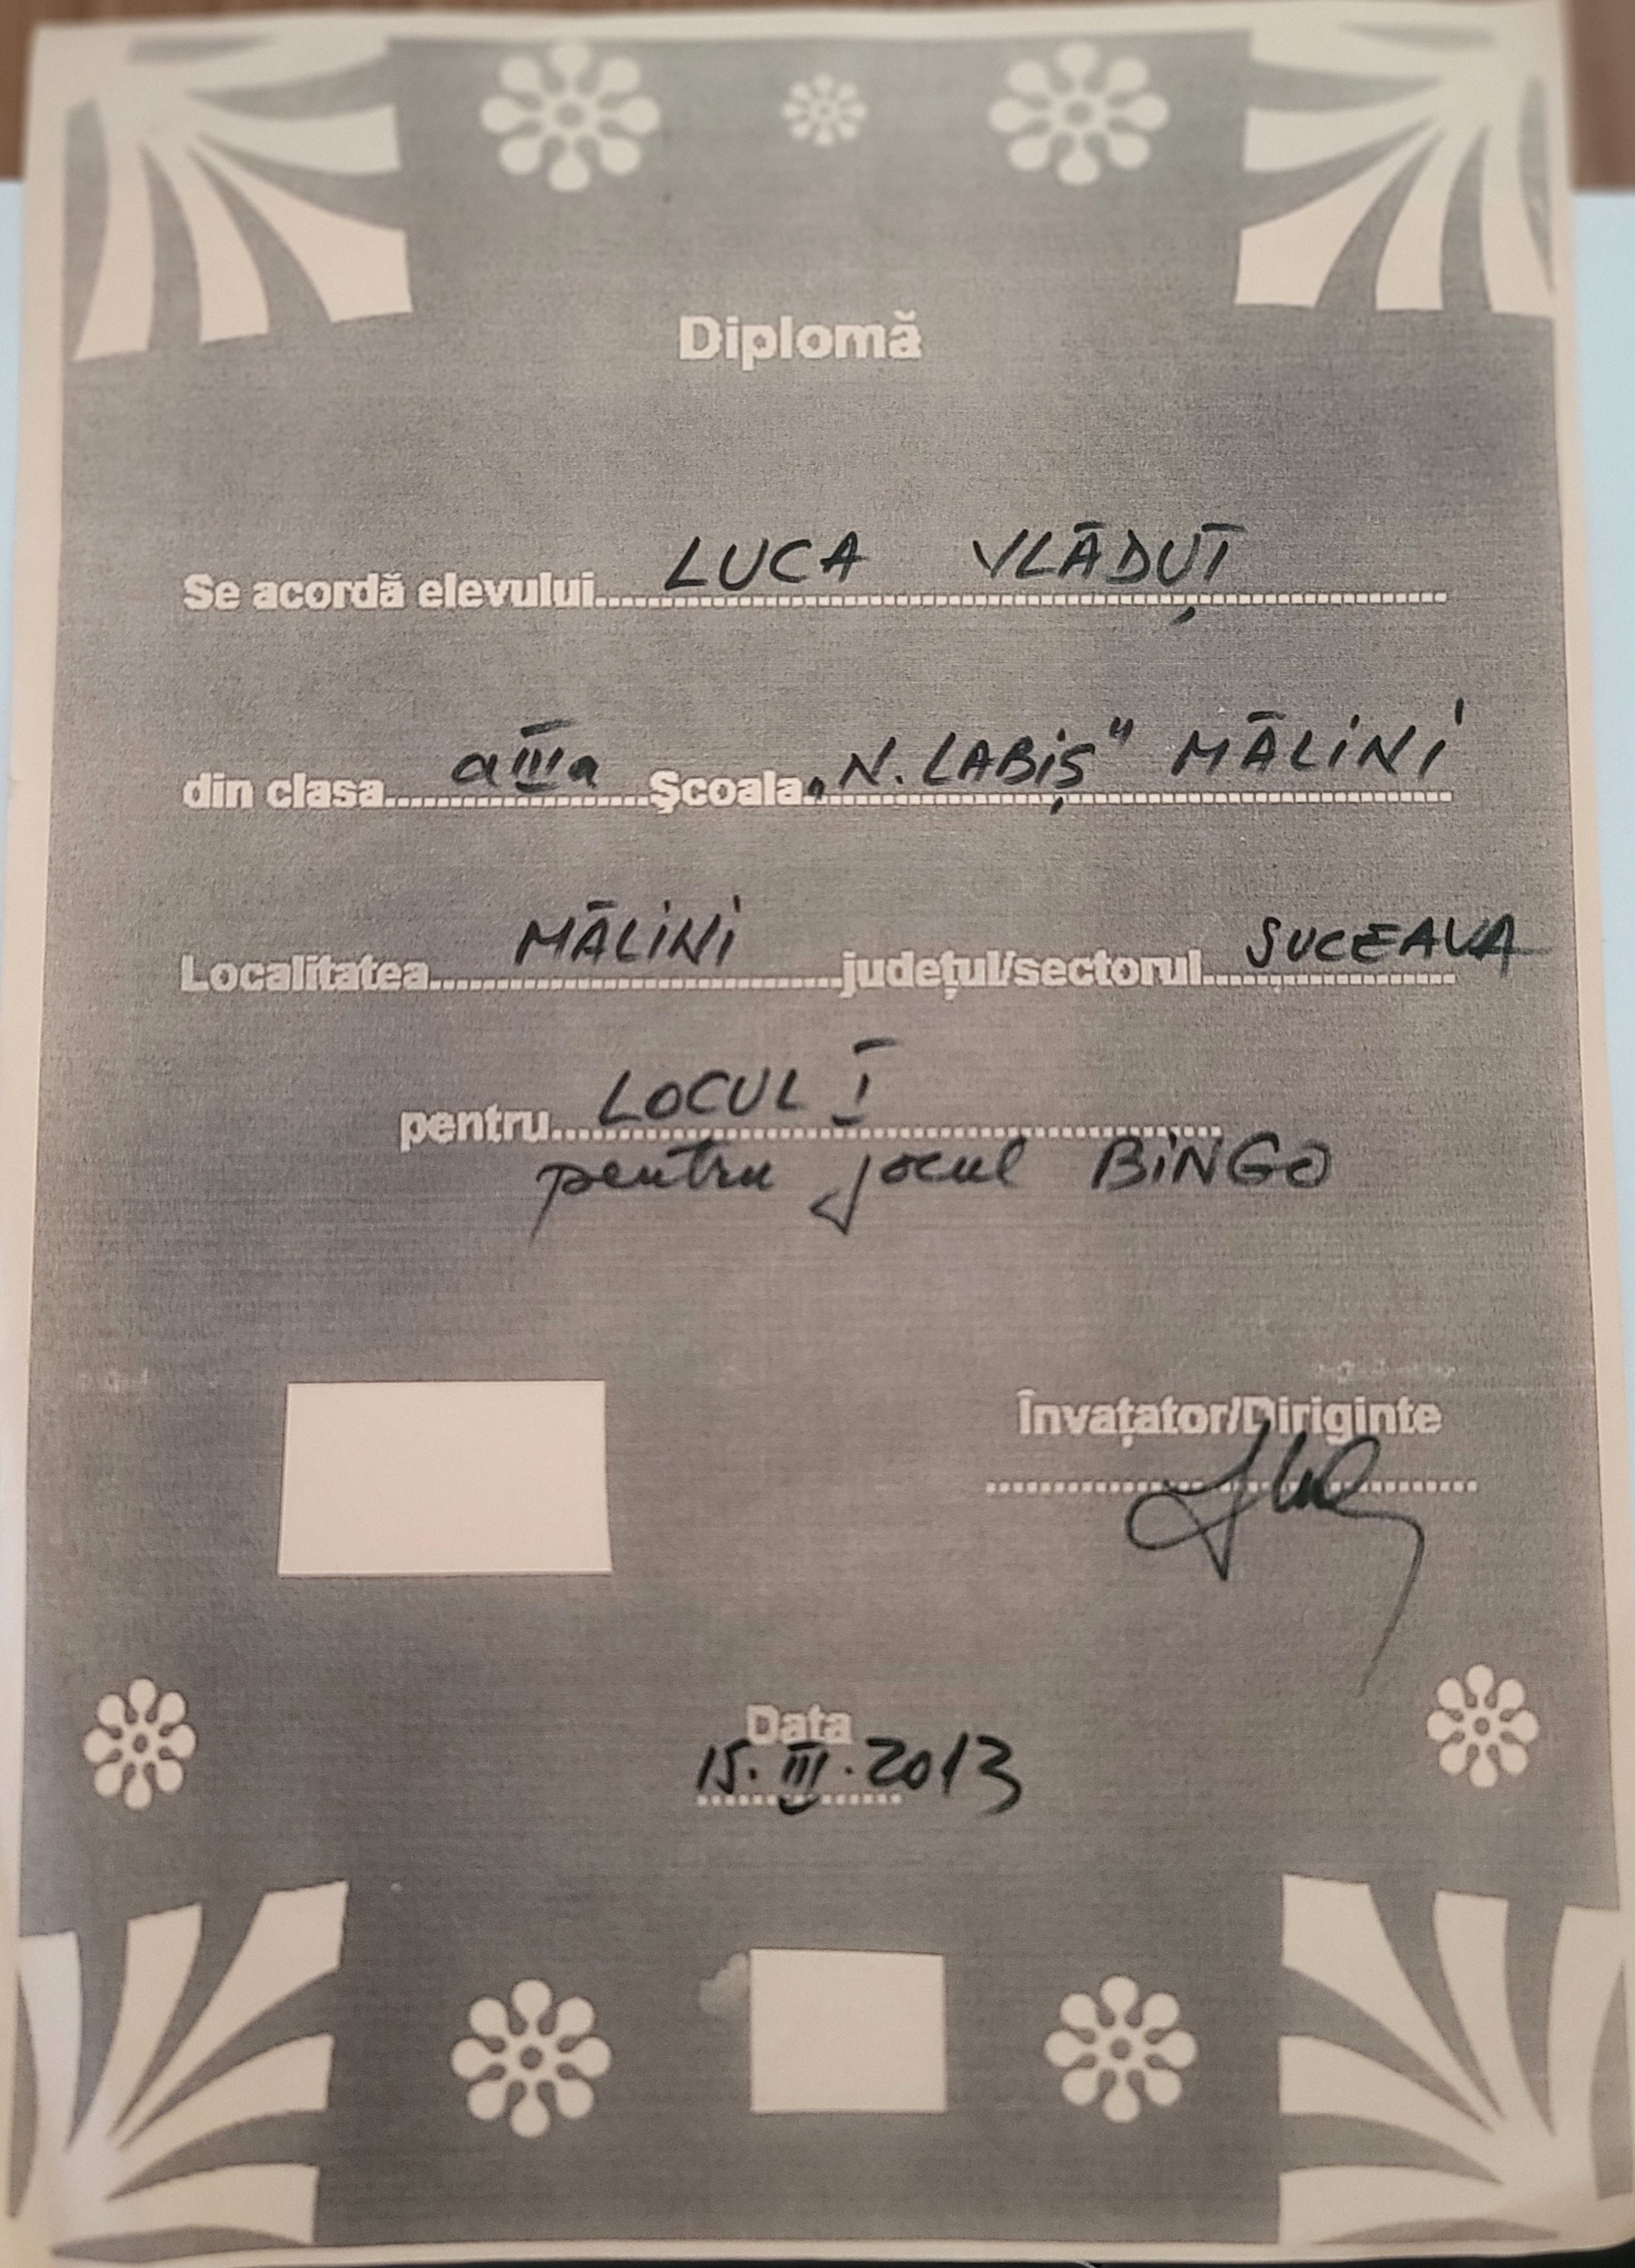 Diplomă
Se acordă elevului....LUCA VLĂDUȚ....
din clasa....a III a....Școala „N. LABIȘ" MĂLINI
Localitatea....MĂLINI....județul/sectorul....SUCEAVA
pentru....LOCUL I....
pentru jocul BINGO
Învațator/Diriginte
Data
15. III. 2013